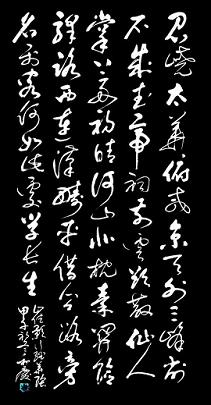 岧嶢太華俯咸京天外三峰削
不成武帝祠前雲欲散仙人
掌上雨初晴河山北枕秦關險
驛路西連漢畤平借問路旁
名利客何如此處學長生
崔顥行經華陰
甲子